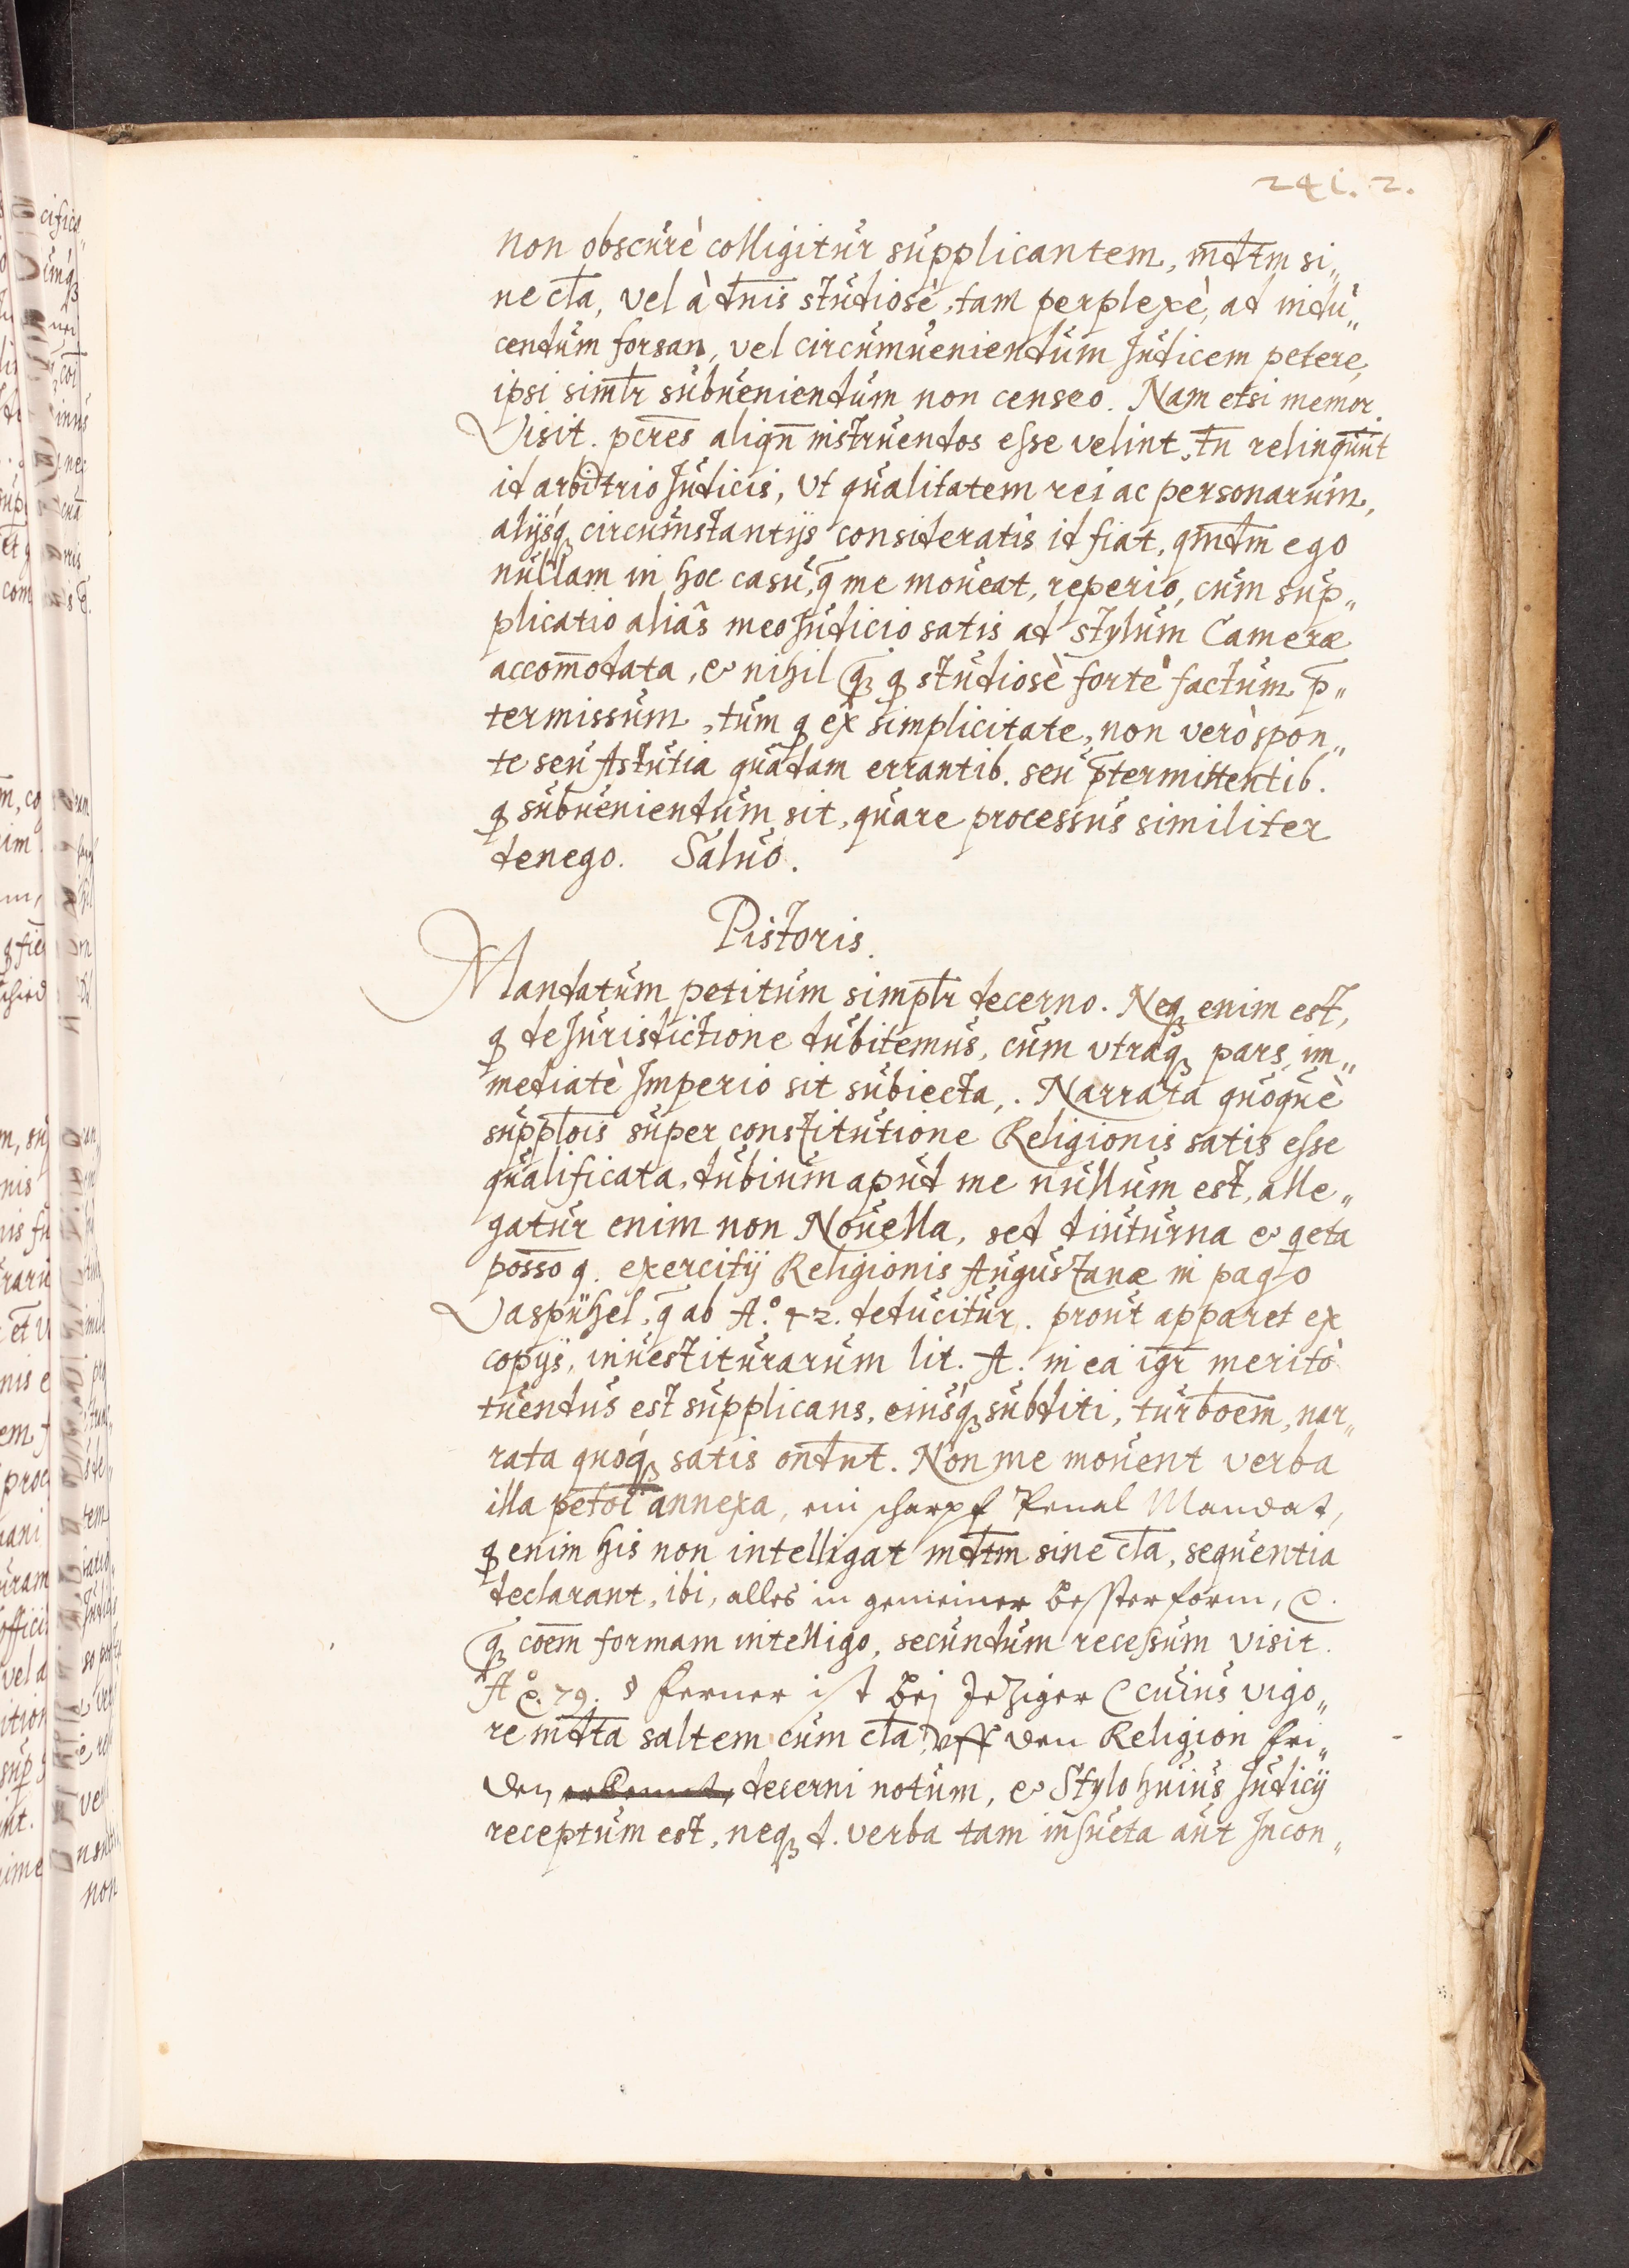 241. 2.
non obscurè colligitur supplicantem, mdtm si„
ne cla, vel à dnis studiosè, tam perplexè, ad indu„
cendum forsan, vel circumueniendum Judicem petere,
ipsi simlr subueniendum non censeo. Nam etsi memor.
Visit. pcres aliqn instruendos esse velint, tn relinqunt
id arbitrio Judicis, vt qualitatem rei ac personarum,
alijsq circumstantijs consideratis id fiat, qmdm ego
nullam in hoc casu, q me moueat, reperio, cum sup„
plicatio aliâs meo Judicio satis ad stylum Cameræ
accom̄odata, & nihil q q studiosè fortè factum p̄„
termissum, tum q ex simplicitate, non verò spon„
te seu Astutia quadam errantib. seu p̄termittentib.
q subueniendum sit, quare processus similiter
denego. Saluo.
Pistoris.
Mandatum petitum simplr decerno. Neq enim est,
q de Jurisdictione dubitemus, cum vtraq pars im„
mediatè Imperio sit subiecta,. Narrata quoquè
supplois super constitutione Religionis satis esse
qualificata, dubium apud me nullum est, alle„
gatur enim non Nouella, sed diuturna & qeta
posso q. exercitij Religionis Augustanæ in pago
Vaspühel, q ab A.º 42. deducitur. prout apparet ex
copijs, inuestiturarum lit. A. in ea igr meritò
tuendus est supplicans, eiusq subditi, turboem, nar„
rata quoq satis ondnt. Non me mouent verba
illa petoi annexa, ein scharpf Penal Mandat,
q enim his non intelligat mdtm sine cla, sequentia
declarant, ibi, alles in gemeiner besster form, &.
q coem formam intelligo, secundum recessum visit.
Aº &. 79. § ferner ist bej Jetziger & cuius vigo„
re mdta saltem cum cla, vff den Religion fri„
den erkennt, decerni notum, & Stylo huius Judicij
receptum est, neq d. verba tam insueta aut Incon„